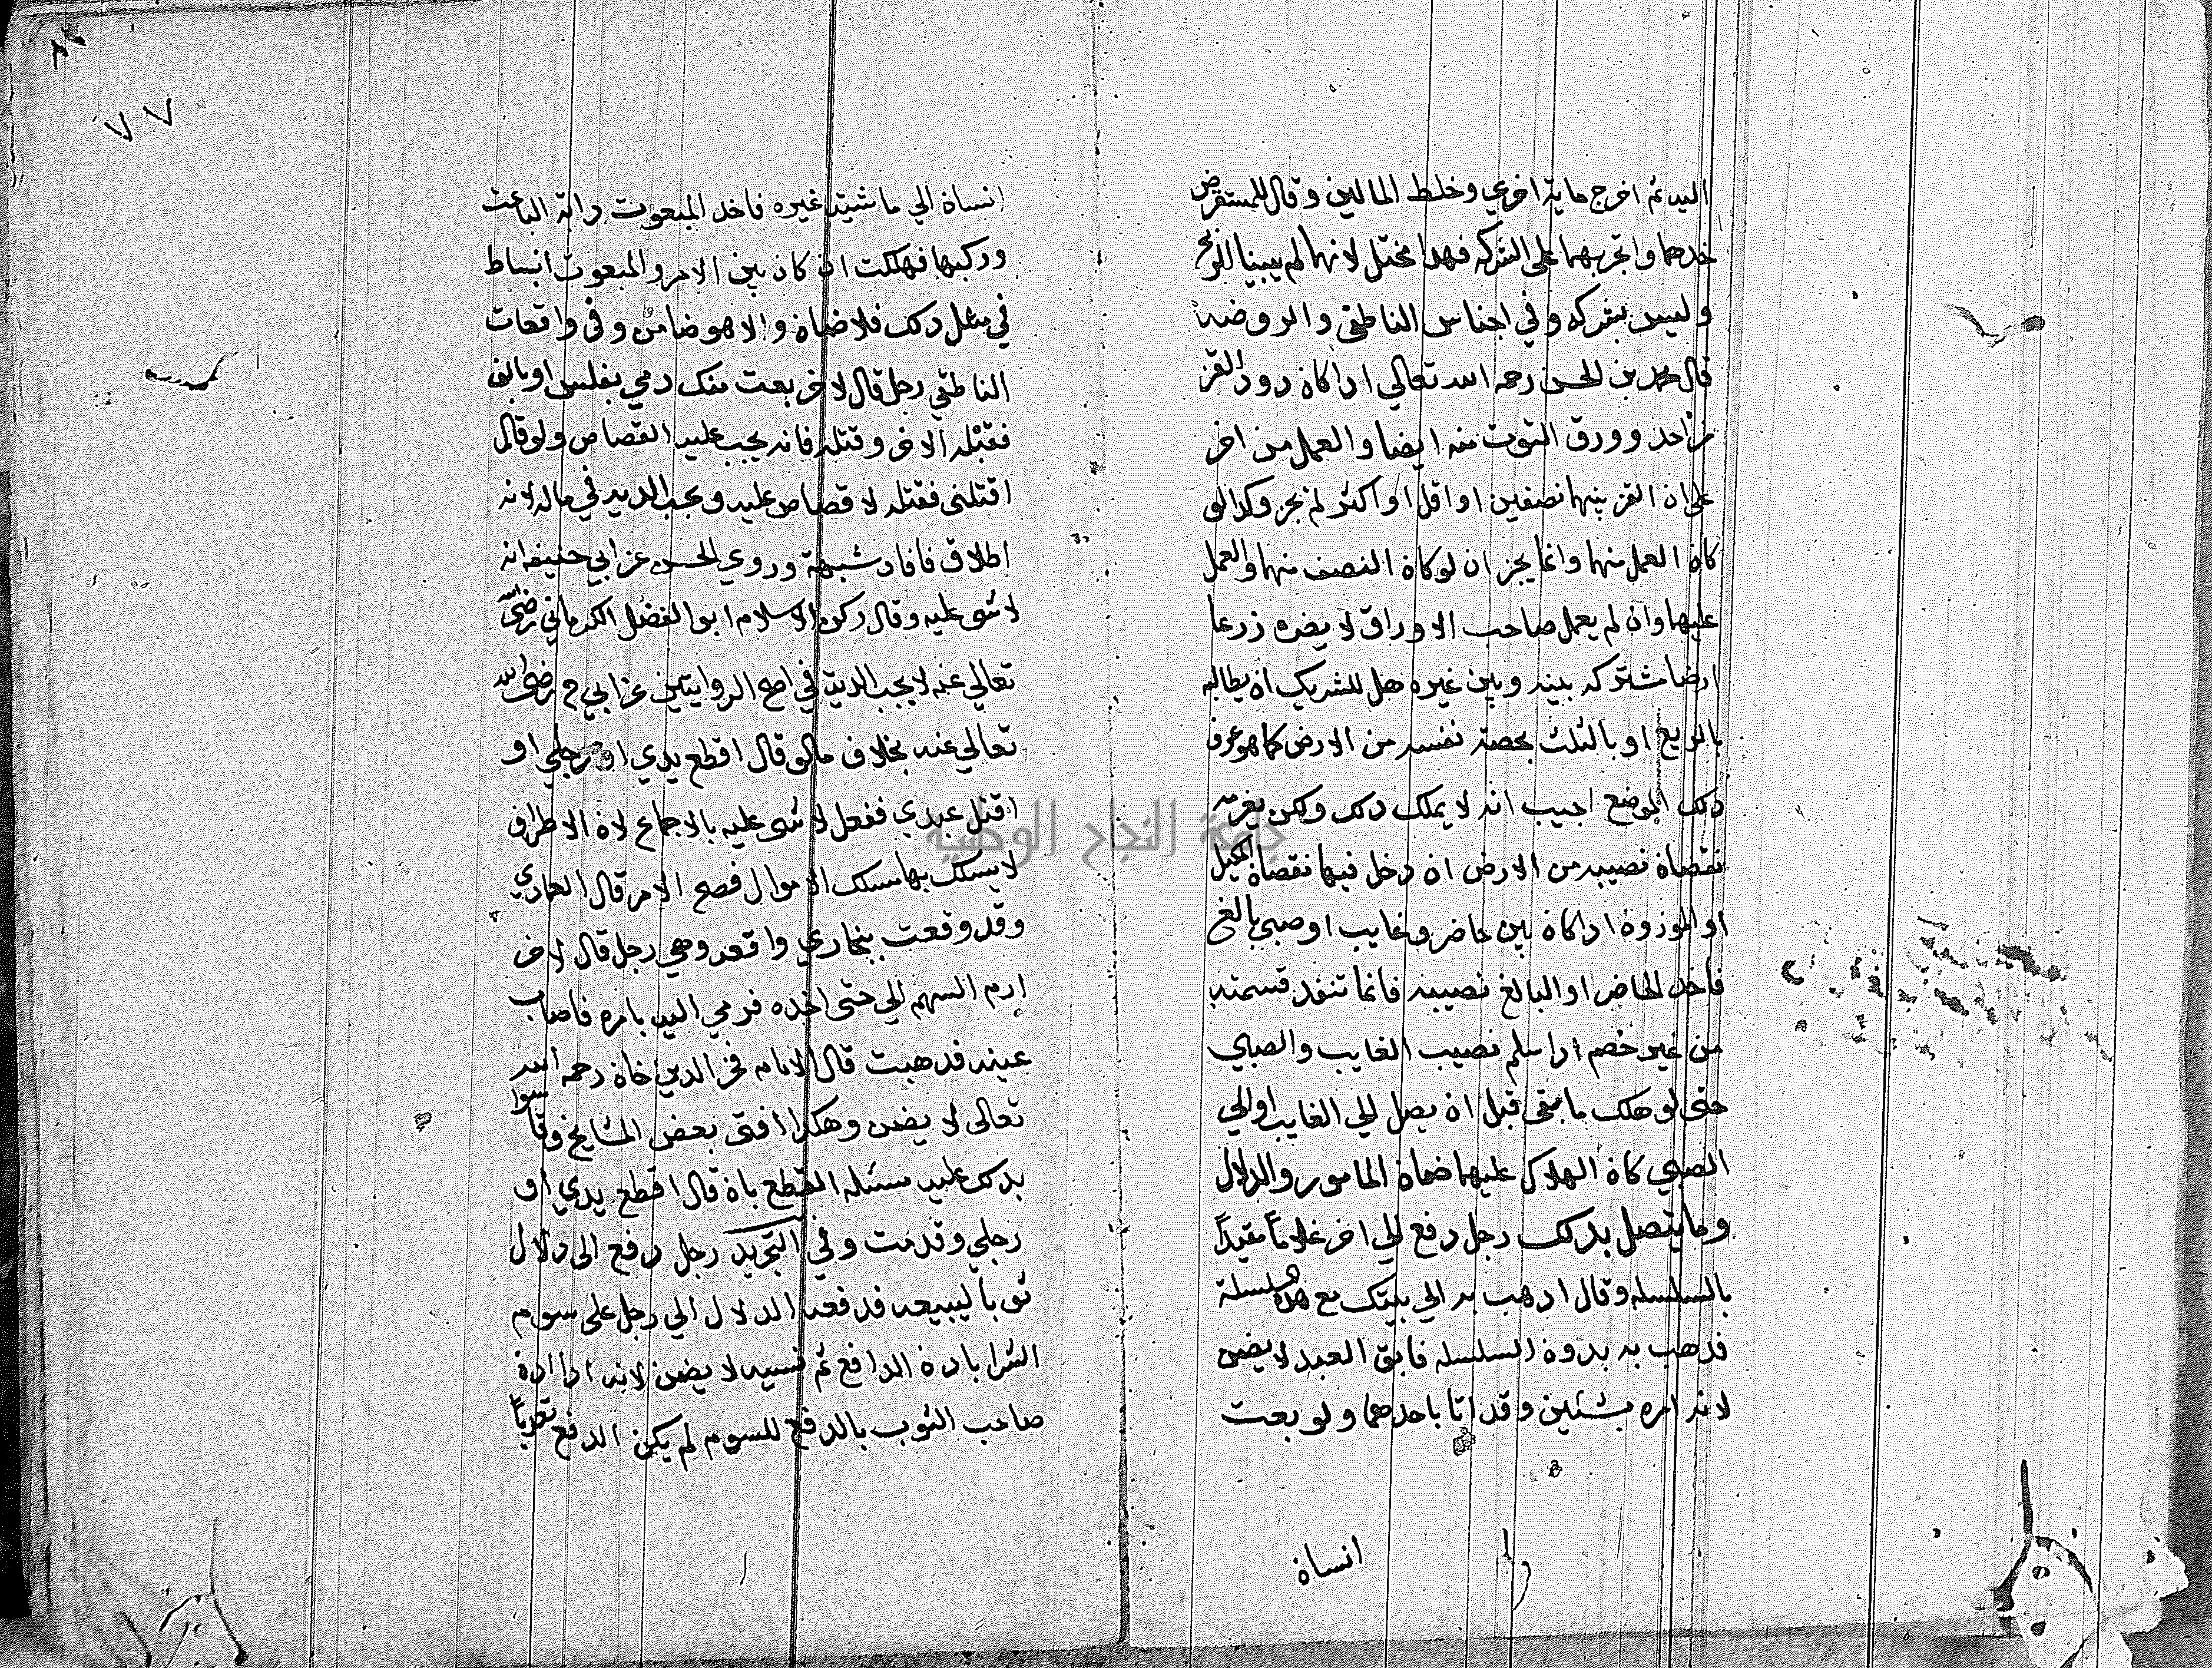 اليه ثم اخرج ماية اخري وخلط المالين وقال للمستقرض
خدهما واتجر بهما على الشركه فهدا مختل لانهما لم يبينا الربح
وليس بشركه وفي اجناس الناطفي والروضه
قال محمد بن الحسن رحمه الله تعالي ادا كان دود القز
من احد وورق التوت منه ايضا والعمل من اخر
على ان القز بينهما نصفين او اقل او اكثر لم يجز وكدا لو
كان العمل منهما وانما يجز ان لو كان النصف منهما والعمل
عليهما وان لم يعمل صاحب الاوراق لا يضره زرعا
ارضا مشتركه بينه وبين غيره هل للشريك ان يطالبه
بالربع او بالثلث بحصة نفسه من الارض كما هو عرف
دلك الموضع اجيب انه لا يملك دلك ولكن يغرمه
نقصان نصيبه من الارض ان دخل فيها نقصان المكيل
او الموزون ادا كان بين حاضر وغايب او صبي بالغ
فاخد الحاضر او البالغ نصيبه فانما تنفد قسمته
من غير خصم ادا سلم نصيب الغايب والصبي
حتى لو هلك ما بقى قبل ان يصل الي الغايب او الي
الصبي كان الهلاك عليهما ضمان المامور والدلال
وما يتصل بدلك رجل دفع الي اخر غلاماً مقيداً
بالسلسله وقال ادهب به الي بيتك مع هده السلسلة
فدهب به بدون السلسله فابق العبد لا يضمن
لانه امره بشئين وقد اتا باحدهما ولو بعث
انسان
٧٧
انسان الي ماشية غيره فاخد المبعوث دابة الباعث
وركبها فهلكت ان كان بين الامر والمبعوث انبساط
في مثل دلك فلا ضمان والا هو ضامن وفى واقعات
الناطفي رجل قال لاخر بعت منك دمي بفلس او بالف
فقبله الاخر وقتله فانه يجب عليه القصاص ولو قال
اقتلني فقتله لا قصاص عليه ويجب الديه في ماله لانه
اطلاق فافاد شبهة وروي الحسن عن ابي حنيفه انه
لا شى عليه وقال ركن الاسلام ابو الفضل الكرماني رضى الله
تعالي عنه لا يجب الدية في اصح الروايتين عن ابي ح رضى الله
تعالي عنه بخلاف ما لو قال اقطع يدي او رجلي او
اقتل عبدي ففعل لا شى عليه بالاجماع لان الاطراف
لا يسلك بها مسلك الاموال فصح الامر قال العمادي
وقد وقعت ببخاري واقعه وهي رجل قال لاخر
ارم السهم الي حتى اخده فرمي اليه بامره فاصاب
عينه فدهبت قال الامام فخر الدين خان رحمه الله
تعالى لا يضمن وهكدا افتى بعض المشايخ وقاسوا
بدلك عليه مسئله القطع بان قال اقطع يدي او
رجلي وقد مت وفي التجريد رجل دفع الى دلال
ثوبا ليبيعه فدفعه الدلال الي رجل على سوم
الشرا بادن الدافع ثم نسيه لا يضمن لانه ادا ادن
صاحب الثوب بالدفع للسوم لم يكن الدفع تعدياً
جامعة النجاح الوطنية